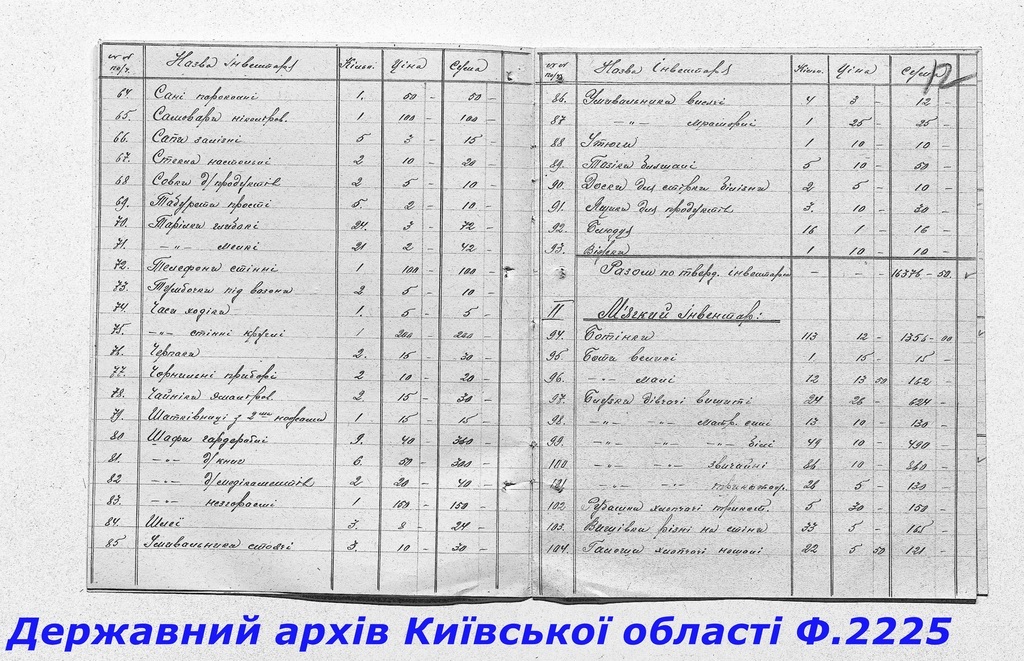 №№ по/ч. Назва інвентаря Кільк. Ціна Сума
64. Сані парокінні 1. 50 - 50 -
65. Самовари нікеліров. 1 100 - 100 -
66. Сапи залізні 5 3 - 15 -
67. Стекла настольні 2 10 - 20 -
68 Совки д/продуктів 2 5 - 10 -
69. Табурети прості 5 2 - 10 -
70. Тарілки глибокі 24. 3 - 72 -
71. -"- мелкі 21 2 - 42 -
72. Телефони стінні 1. 100 - 100 -
73. Тумбочки під вазони 2 5 - 10 -
74. Часи ходіки 1. 5 - 5 -
75. -"- стінні круглі 200 - 200 -
76. Черпаки 2. 15 - 30 -
77. Чорнильні прибори 2 10 - 20 -
78. Чайніки эмаліров. 2 15 - 30 -
79. Шатківниці з 2-ма ножами 1 15 - 15 -
80 Шафи гардеробні 9. 40 - 360 -
81 -"- д/книг 6. 50 - 300 -
82 -"- д/медікаментів 2 20 - 40 -
83. -"- незгораємі 1 150 - 150 -
84. Шлеї 3. 8 - 24 -
85 Умивальники стоячі 3. 10 - 30 -
№№ по/ч. Назва інвентаря Кільк. Ціна Сума
12
86. Умивальники висячі 4 3 - 12 -
87 -"- мраморні 1 25 - 25 -
88 Утюги 1 10 - 10 -
89. Тазіки 5 10 - 50 -
90. Доски для стірки білізни 2 5 - 10 -
91. Ящики для продуктів 3. 10 - 30 -
92. Блюдця 16 1 - 16 -
93. Візки 1 10 - 10 -
Разом по тверд. інвентарю - - 16376 - 50.
II М'ягкий інвентар:
94. Ботінки 113 12 - 1356 - 00
95. Боти великі 1 15 - 15 -
96. -"- малі 12 13 50 162 -
97. Блузки дівочі вишиті 24 26 - 624 -
98. -"- -"- матр. сині 13 10 - 130 -
99. -"- -"- -"- білі 49 10 - 490 -
100. -"- -"- звичайні 86 10 - 860 -
101 -"- -"- трикотаж. 26 5 - 130 -
102 Рубашки хлопчачі трикот. 5 30 - 150 -
103. Вишівки різні на стіни 33 5 - 165 -
104. Галоши хлопчачі 22 5 50 121 -
Державний архів Київської області Ф.2225